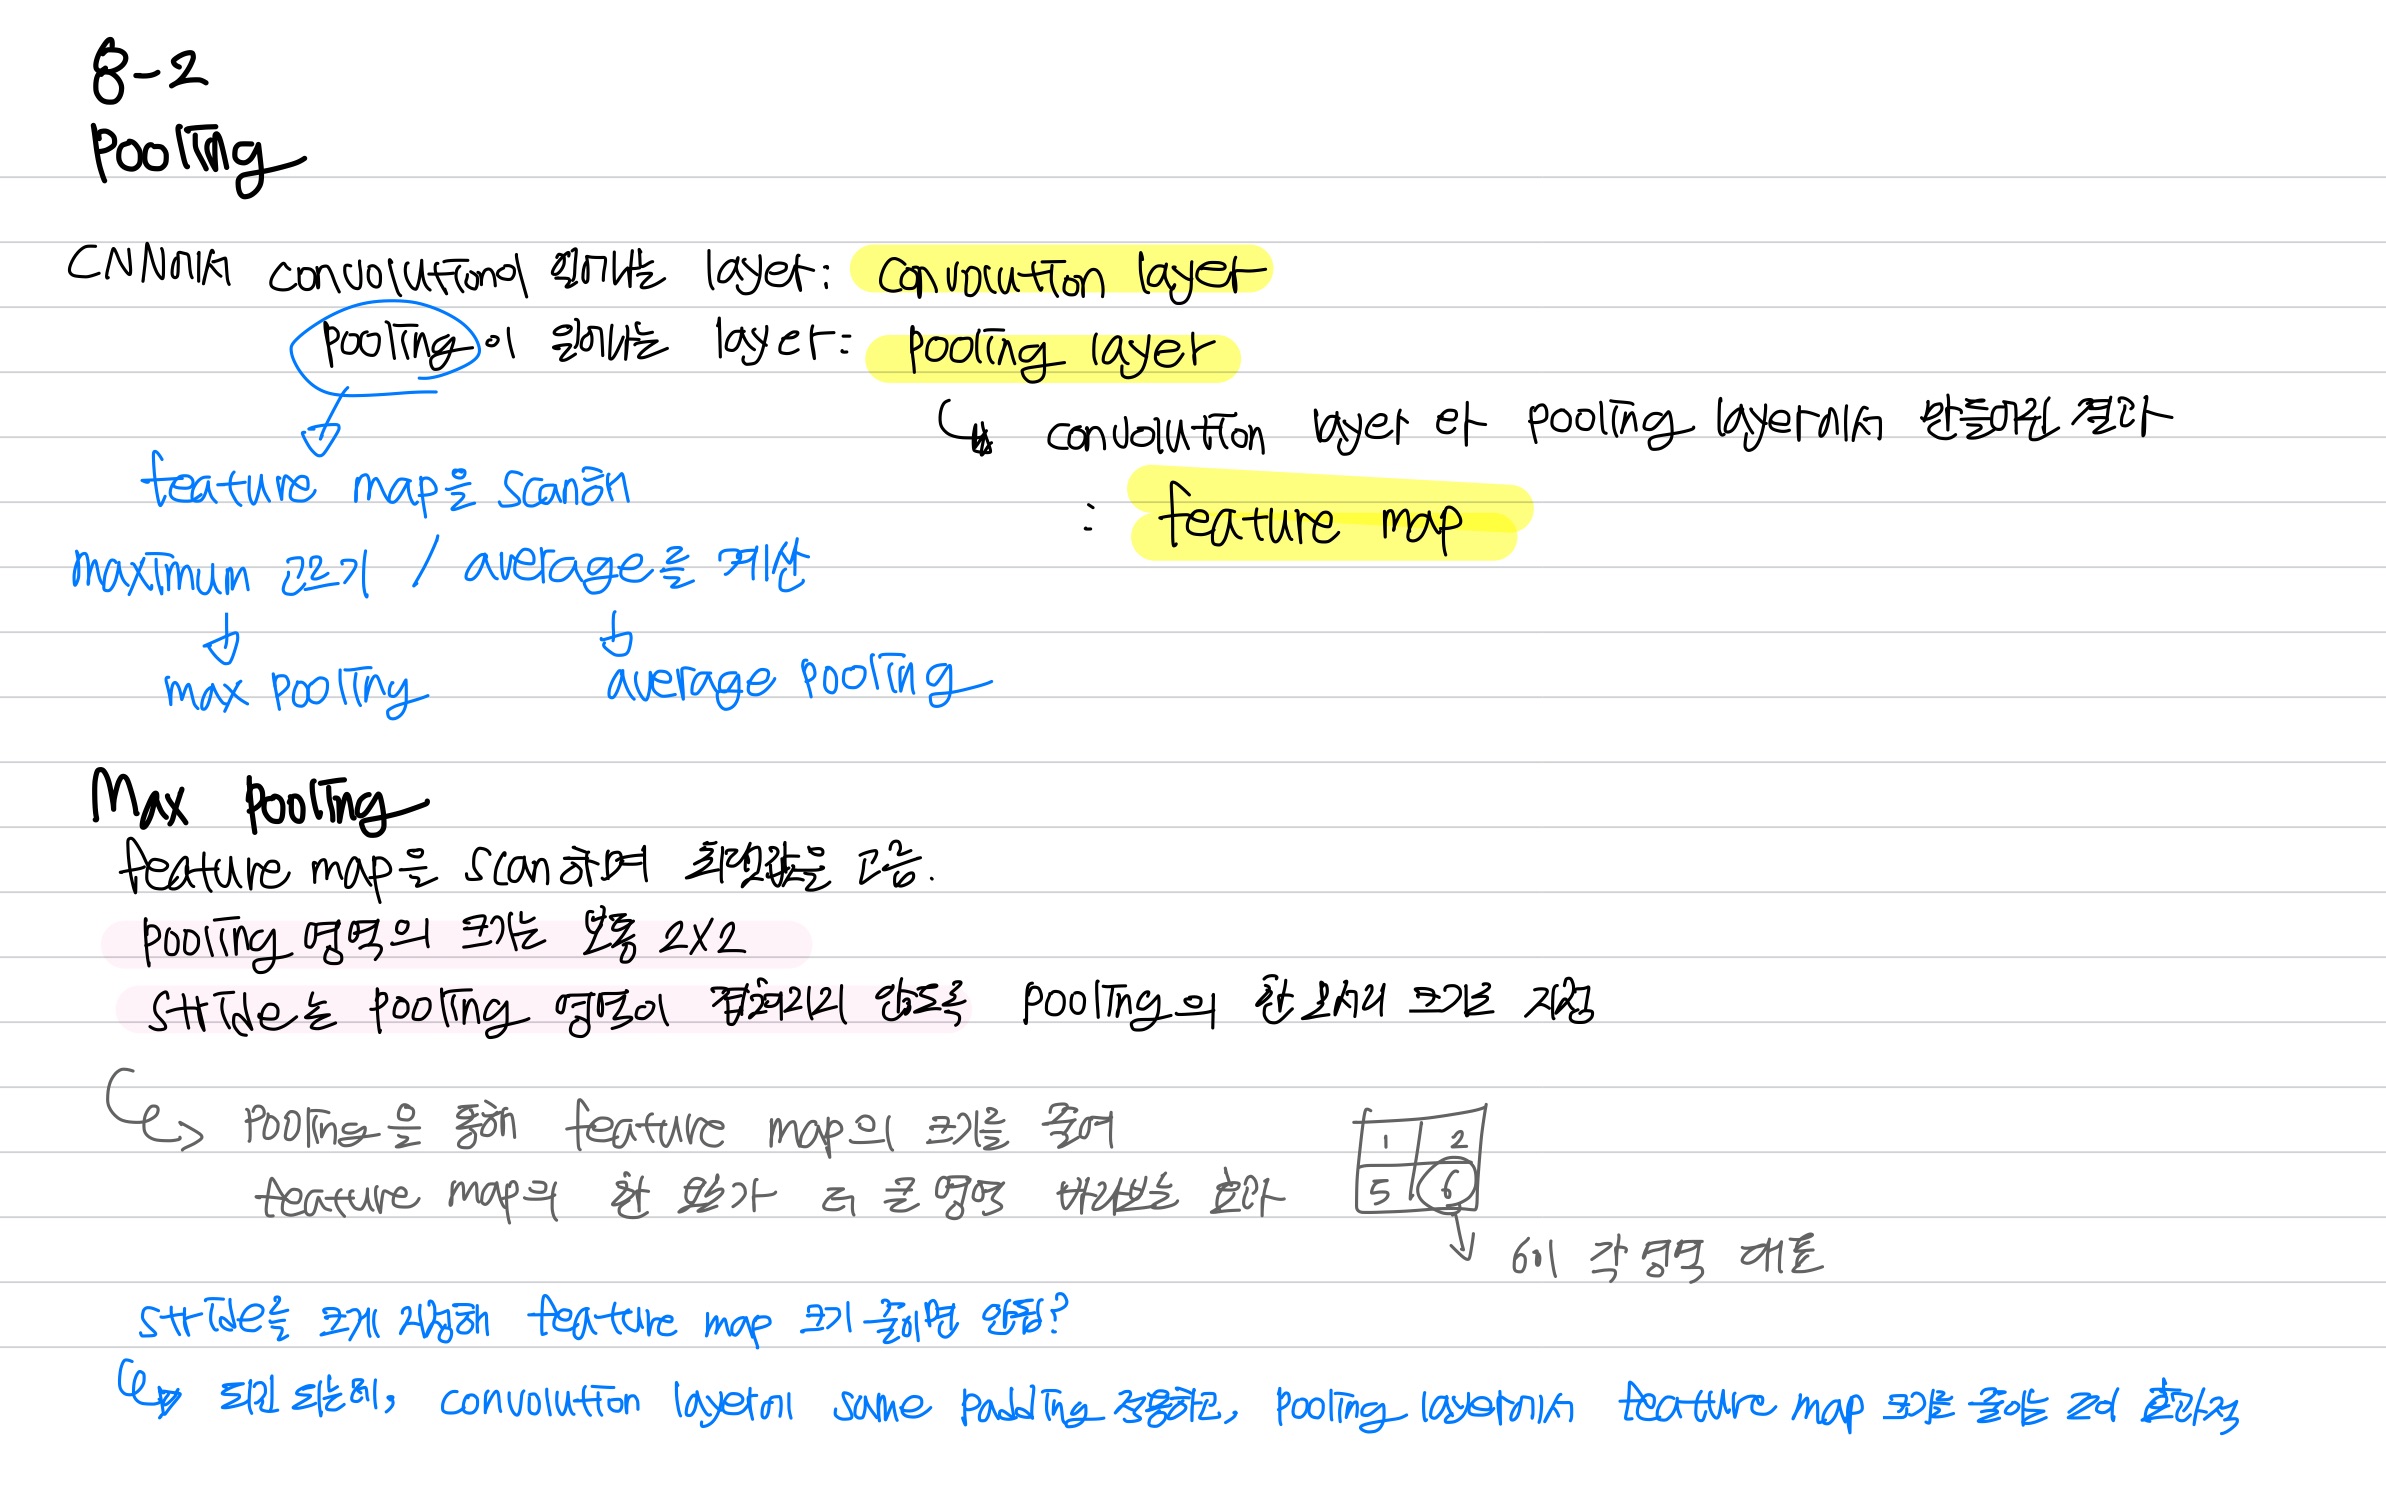 8-2
Pooling
CNN에서 convolution이 일어나는 layer: convolution layer
pooling이 일어나는 layer: pooling layer
convolution layer 와 pooling layer에서 만들어진 결과
: feature map
feature map을 scan해
maximum 고르기 / average를 계산
max pooling
average pooling
Max pooling
feature map을 scan하며 최댓값을 고름.
pooling 영역의 크기는 보통 2X2
stride는 pooling 영역이 겹쳐지지 않도록 pooling의 한 모서리 크기로 지정
pooling을 통해 feature map의 크기를 줄여
feature map의 한 픽셀가 더 큰 영역 바라보는 효과
1 2
5 6
6이 각 영역 대표
stride를 크게 지정해 feature map 크기 줄이면 안됨?
되긴 되는데, convolution layer에 same padding 적용하고, pooling layer에서 feature map 크기를 줄이는 것이 효과적